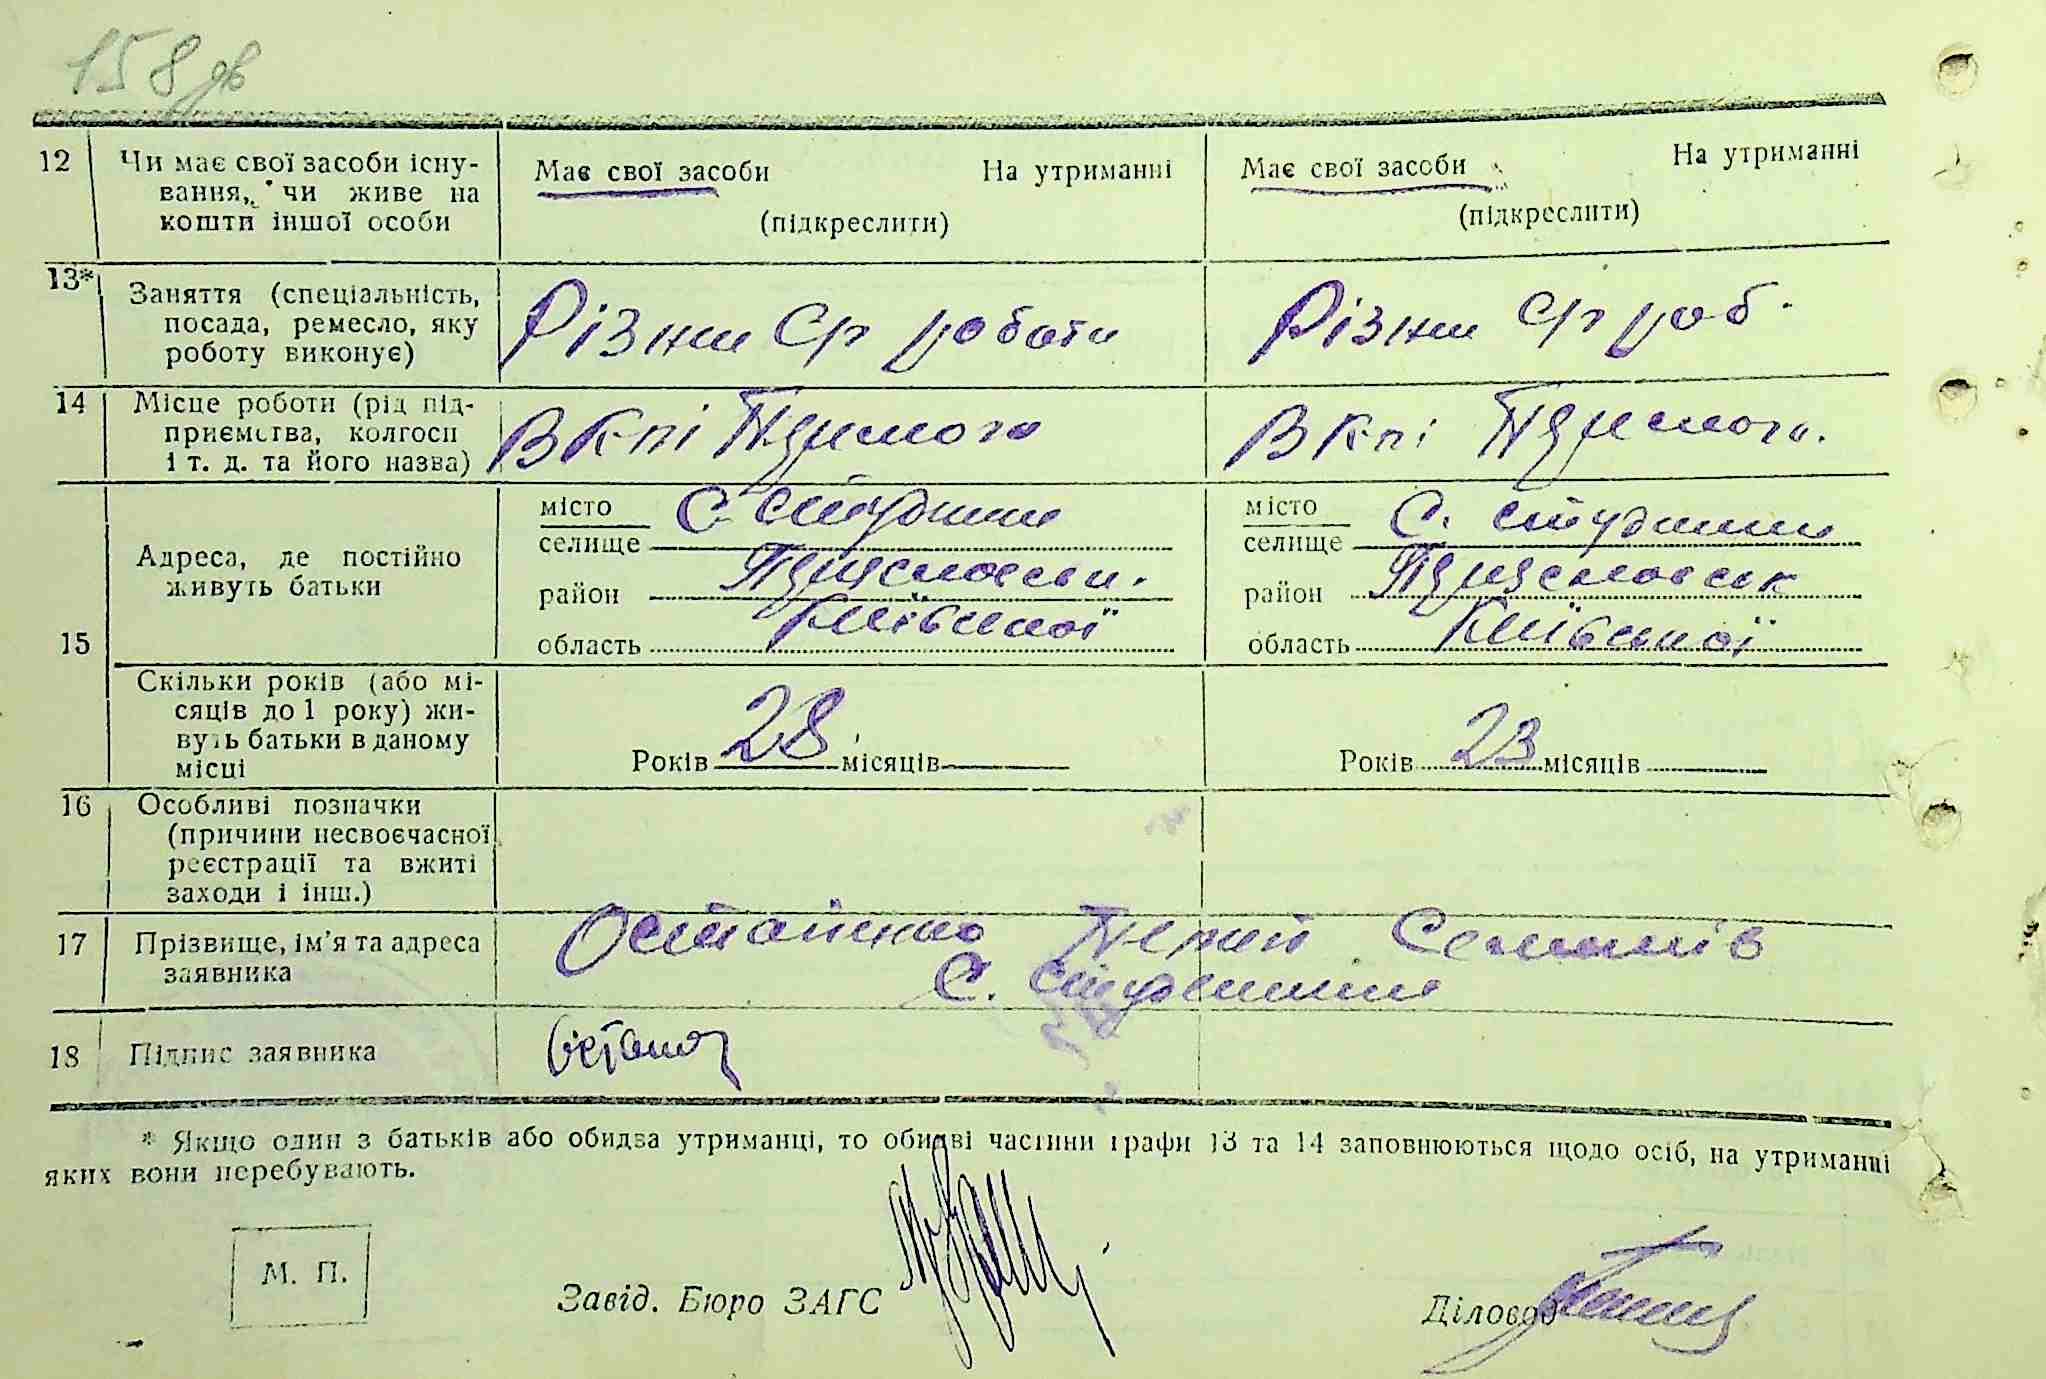 158 зв
12 Чи має свої засоби існу-
вання, чи живе на
кошти іншої особи
Має свої засоби На утриманні
(підкреслити)
Має свої засоби На утриманні
(підкреслити)
13* Заняття (спеціальність,
посада, ремесло, яку
роботу виконує)
Різни Ср роботи
Різни Ср роб.
14 Місце роботи (рід під-
приємства, колгосп
і т. д. та його назва)
В К-пі
В К-пі
15 Адреса, де постійно
живуть батьки
місто
селище С. Студеники
район
область Київської
місто
селище С. Студеники
район
область Київської
Скільки років (або мі-
сяців до 1 року) жи-
вуть батьки в даному
місці
Років 28 місяців
Років 23 місяців
16 Особливі позначки
(причини несвоєчасної
реєстрації та вжиті
заходи і інш.)
17 Прізвище, ім'я та адреса
заявника
Остапенко Семенів
С. Студеники
18 Підпис заявника
* Якщо один з батьків або обидва утриманці, то обидві частини графи 13 та 14 заповнюються щодо осіб, на утриманні
яких вони перебувають.
М. П.
Завід. Бюро ЗАГС
Діловод